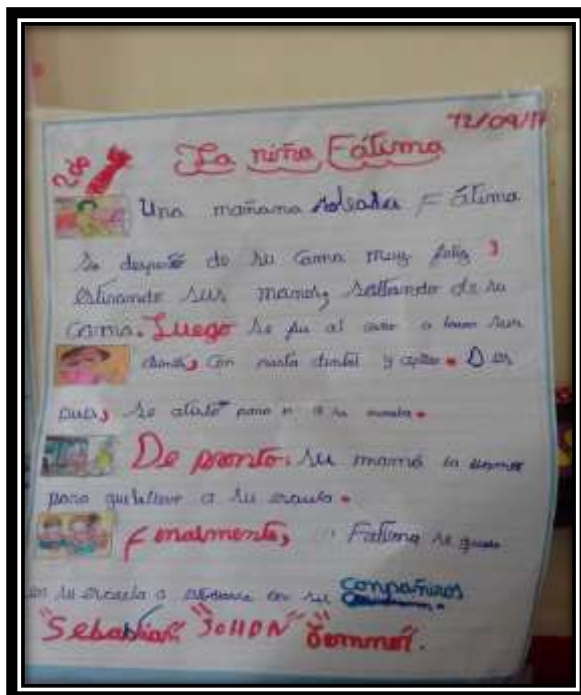 12/09/17
La niña Fátima
Una mañana soleada Fátima
Se despertó de su cama muy feliz y
estirando sus manos, saltando de su
cama. Luego se al a sus
dientes con pasta dental y cepillo. Des
pués, se para ir a su escuela.
De pronto. su mamá la
para que lleve a su escuela.
Fenalmente, Fatima se quedo
en su escuela a con su conpañeros
"Sebastian" "JOHDN"